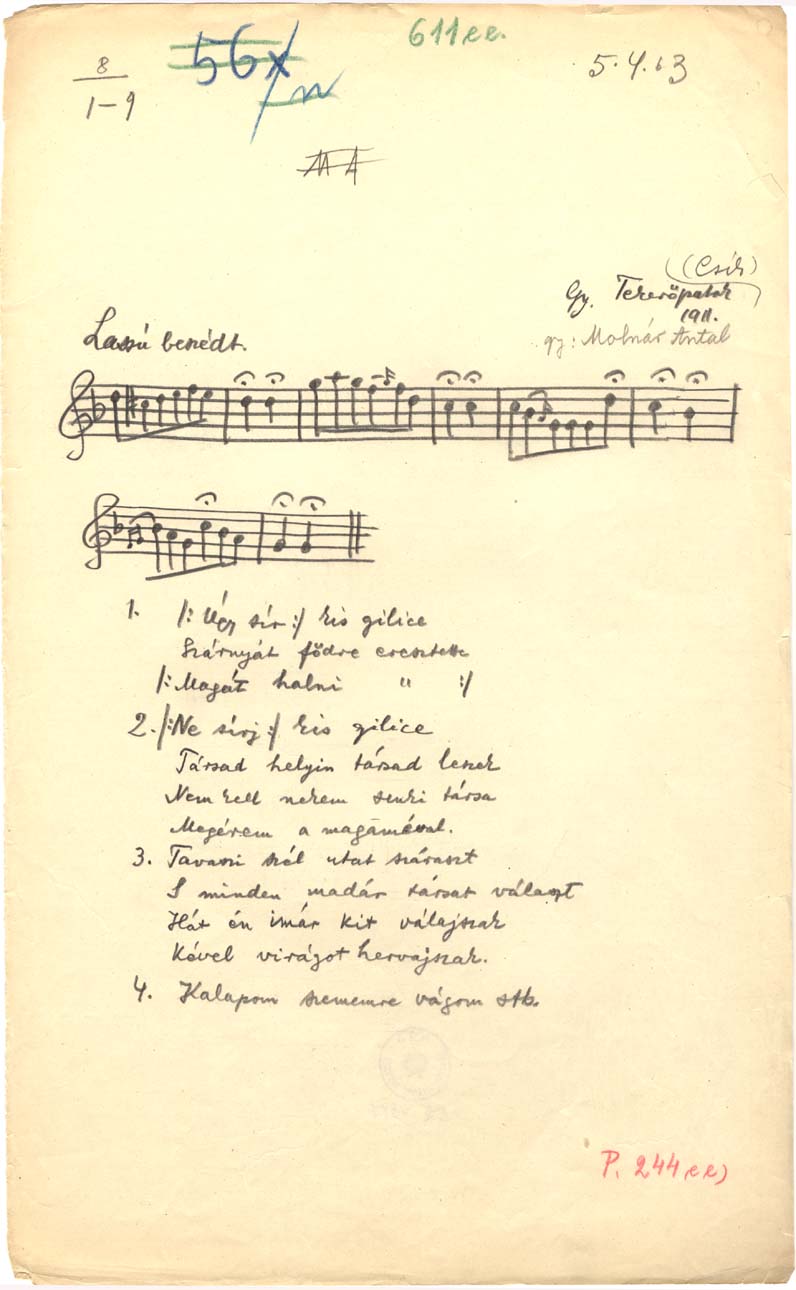 8
1-9
56x
n
611ee.
5.4.b3
MA
(Csík)
Gy. Tekerőpatak
1911.
gy: Molnár Antal
Lassú beszédt.
1. /: Úgy sír :/ kis gilice
Szárnyát födre eresztette
/: Magát halni " :/
2. /: Ne sírj :/ kis gilice
Társad helyin társad leszek
Nem kell nekem senki társa
Megérem a magaméval.
3. Tavaszi szél utat száraszt
S minden madár társat választ
Hát én imár kit válajszak
Kével virágot hervajszak.
4. Kalapom szememre vágom stb.
P. 244ee)